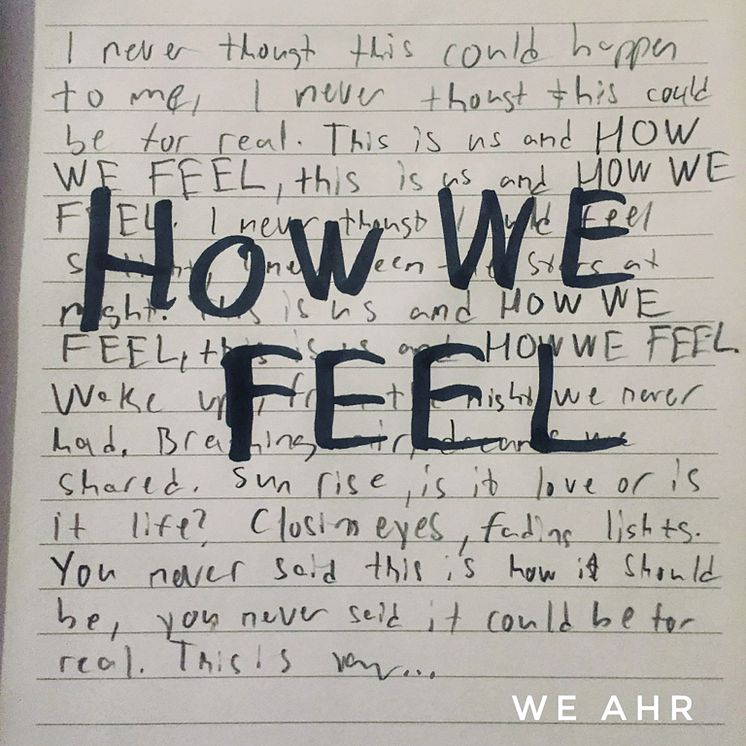 I never thougt this could happen
to me, I never thougt this could
be for real. This is us and HOW
WE FEEL, this is us and HOW WE
FEEL. I never thougt I could feel
stars at
night. This is us and HOW WE
FEEL, this is us and HOW WE FEEL.
Wake up, from the night we never
had. Breathing air, dreams we
shared. Sun rise, is it love or is
it life? Closing eyes, fading lights.
You never said this is how it should
be, you never said it could be for
real. This is
HOW WE
FEEL
WE AHR